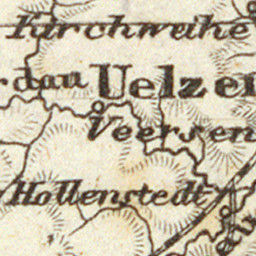 Kirchweihe
rdau Uelzen
Veerssen
Hollenstedt